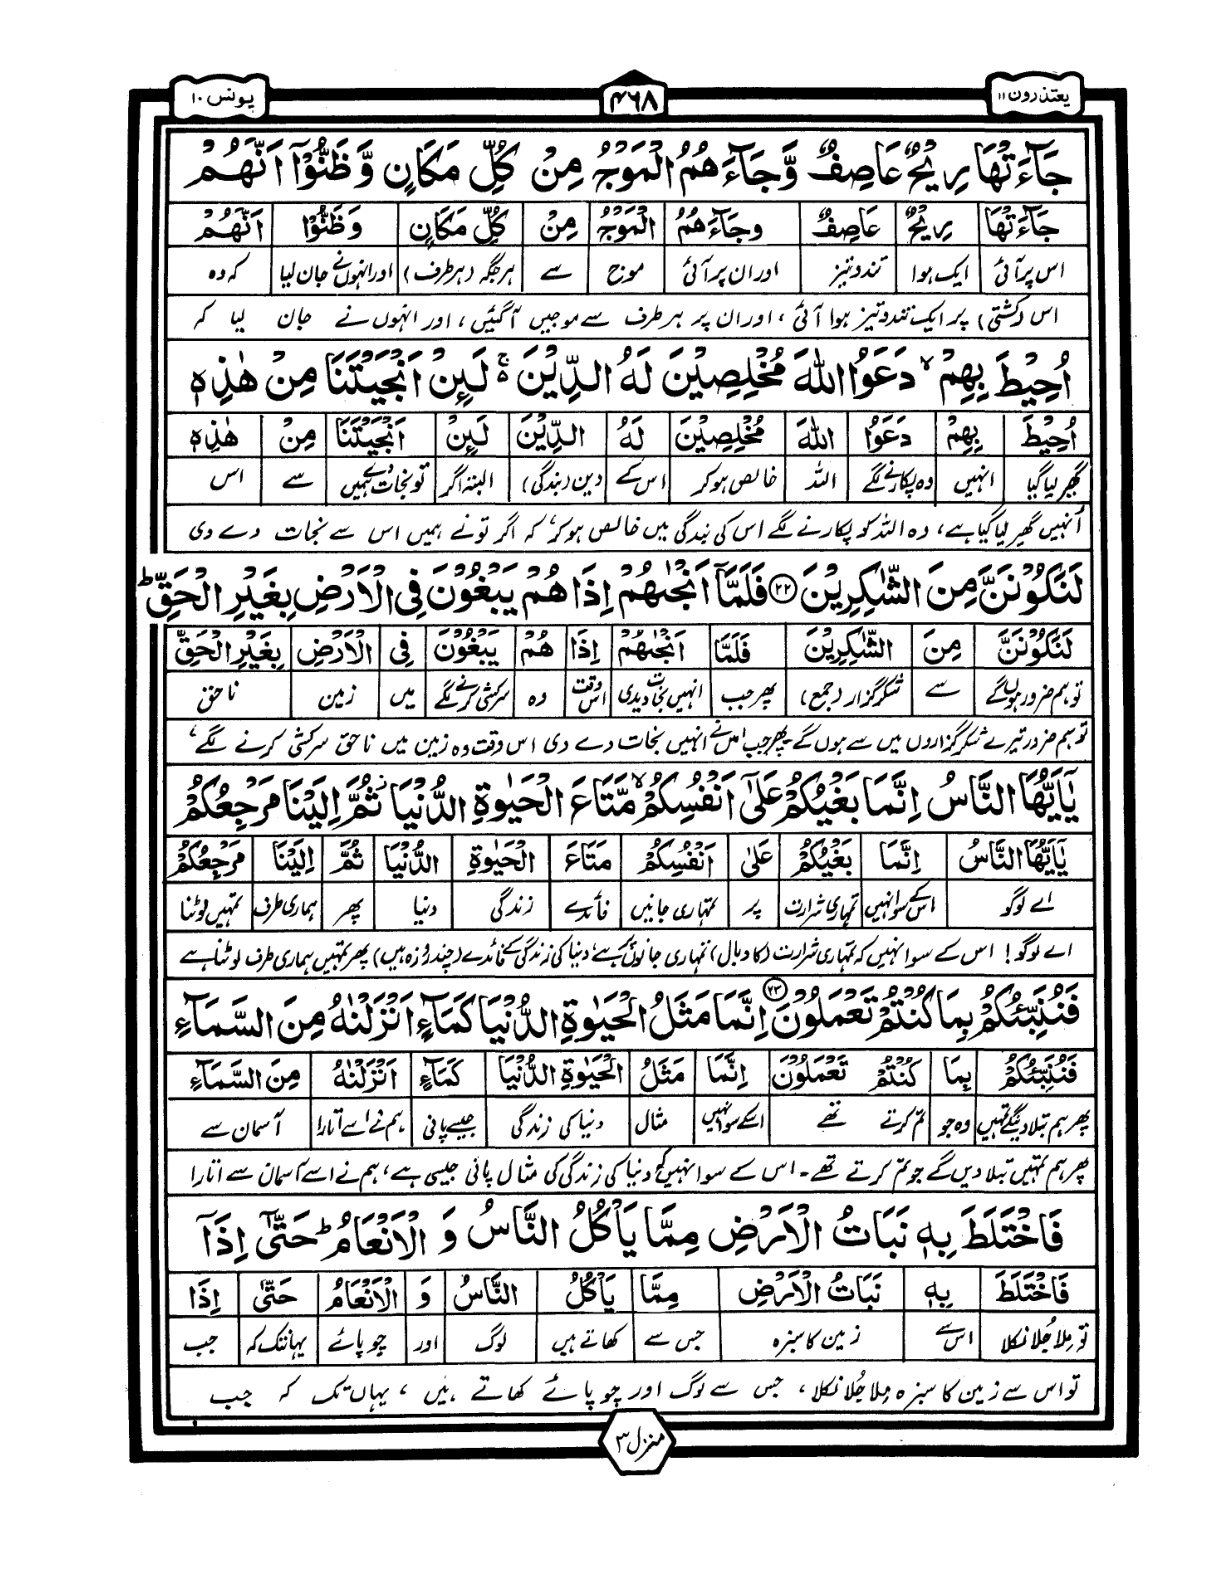 یعتذرون ۱۱
۴۶۸
یونس ۱۰
جَآءَتْهَا رِيْحٌ عَاصِفٌ وَّجَآءَهُمُ الْمَوْجُ مِنْ كُلِّ مَكَانٍ وَّظَنُّوْٓا اَنَّهُمْ
جَآءَتْهَا رِيْحٌ عَاصِفٌ وجَآءَهُمُ الْمَوْجُ مِنْ كُلِّ مَكَانٍ وَظَنُّوْٓا اَنَّهُمْ
اس پر آئی ایک ہوا تند و تیز اور ان پر آئی موج سے ہر جگہ (ہر طرف) اور انہوں نے جان لیا کہ وہ
اس (کشتی) پر ایک تند و تیز ہوا آئی، اور ان پر ہر طرف سے موجیں آگئیں، اور انہوں نے جان لیا کہ
اُحِيْطَ بِهِمْ ۙ دَعَوُا اللّٰهَ مُخْلِصِيْنَ لَهُ الدِّيْنَ ۚ لَىِٕنْ اَنْجَيْتَنَا مِنْ هٰذِهٖ
اُحِيْطَ بِهِمْ دَعَوُا اللّٰهَ مُخْلِصِيْنَ لَهُ الدِّيْنَ لَىِٕنْ اَنْجَيْتَنَا مِنْ هٰذِهٖ
گھیر لیا گیا انہیں وہ پکارنے لگے اللہ خالص ہوکر اس کے دین (بندگی) البتہ اگر تو نجات دے ہمیں سے اس
اُنہیں گھیر لیا گیا ہے، وہ اللہ کو پکارنے لگے اس کی بندگی میں خالص ہوکر، کہ اگر تونے ہمیں اس سے نجات دے دی
لَنَكُوْنَنَّ مِنَ الشّٰكِرِيْنَ ۲۲ فَلَمَّآ اَنْجٰىهُمْ اِذَا هُمْ يَبْغُوْنَ فِى الْاَرْضِ بِغَيْرِ الْحَقِّ ؕ
لَنَكُوْنَنَّ مِنَ الشّٰكِرِيْنَ فَلَمَّا اَنْجٰىهُمْ اِذَا هُمْ يَبْغُوْنَ فِى الْاَرْضِ بِغَيْرِ الْحَقِّ
تو ہم ضرور ہوں گے سے شکر گزار (جمع) پھر جب انہیں نجات دیدی اس وقت وہ سرکشی کرنے لگے میں زمین ناحق
تو ہم ضرور تیرے شکر گزاروں میں سے ہوں گے پھر جب اس نے انہیں نجات دے دی اس وقت وہ زمین میں ناحق سرکشی کرنے لگے،
يٰۤاَيُّهَا النَّاسُ اِنَّمَا بَغْيُكُمْ عَلٰٓى اَنْفُسِكُمْ ۙ مَّتَاعَ الْحَيٰوةِ الدُّنْيَا ؗ ثُمَّ اِلَيْنَا مَرْجِعُكُمْ
يٰۤاَيُّهَا النَّاسُ اِنَّمَا بَغْيُكُمْ عَلٰٓى اَنْفُسِكُمْ مَتَاعَ الْحَيٰوةِ الدُّنْيَا ثُمَّ اِلَيْنَا مَرْجِعُكُمْ
اے لوگو اسکے سوا نہیں تمہاری شرارت پر تمہاری جانیں فائدے زندگی دنیا پھر ہماری طرف تمہیں لوٹنا
اے لوگو! اس کے سوا نہیں کہ تمہاری شرارت (کا وبال) تمہاری جانوں پر ہے، دنیا کی زندگی کے فائدے (چند روزہ ہیں) پھر تمہیں ہماری طرف لوٹنا ہے
فَنُنَبِّئُكُمْ بِمَا كُنْتُمْ تَعْمَلُوْنَ ۲۳ اِنَّمَا مَثَلُ الْحَيٰوةِ الدُّنْيَا كَمَآءٍ اَنْزَلْنٰهُ مِنَ السَّمَآءِ
فَنُنَبِّئُكُمْ بِمَا كُنْتُمْ تَعْمَلُوْنَ اِنَّمَا مَثَلُ الْحَيٰوةِ الدُّنْيَا كَمَآءٍ اَنْزَلْنٰهُ مِنَ السَّمَآءِ
پھر ہم بتلا دینگے تمہیں وہ جو تم کرتے تھے اسکے سوا نہیں مثال دنیا کی زندگی جیسے پانی ہم نے اسے اتارا آسمان سے
پھر ہم تمہیں بتلا دیں گے جو تم کرتے تھے۔ اس کے سوا نہیں کہ دنیا کی زندگی کی مثال پانی جیسی ہے، ہم نے اسے آسمان سے اتارا
فَاخْتَلَطَ بِهٖ نَبَاتُ الْاَرْضِ مِمَّا يَاْكُلُ النَّاسُ وَ الْاَنْعَامُ ؕ حَتّٰٓى اِذَآ
فَاخْتَلَطَ بِهٖ نَبَاتُ الْاَرْضِ مِمَّا يَاْكُلُ النَّاسُ وَ الْاَنْعَامُ حَتّٰٓى اِذَا
تو مِلا جُلا نکلا اس سے زمین کا سبزہ جس سے کھاتے ہیں لوگ اور چوپائے یہانتک کہ جب
تو اس سے زمین کا سبزہ مِلا جُلا نکلا، جس سے لوگ اور چوپائے کھاتے ہیں، یہاں تک کہ جب
منزل ۳